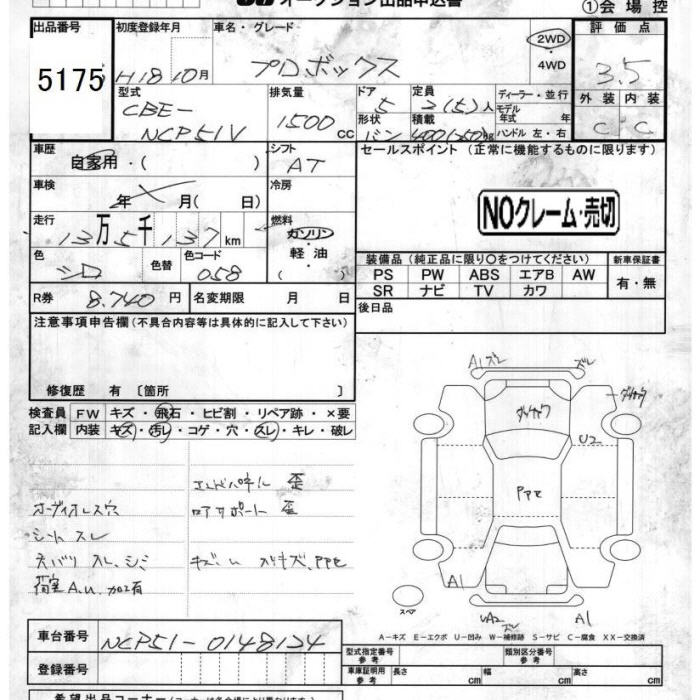 オークション出品申込書
①会場控
出品番号
5175
初度登録年月
H18 10月
車名・グレード
プロボックス
2WD
4WD
評価点
3.5
外装 内装
C C
型式
CBE-
NCP51V
排気量
1500
CC
ドア
5
定員
2(5)人
形状
バン
積載
400(250)kg
ディーラー・並行
モデル
年式 年
ハンドル 左・右
車歴
自家用・( )
シフト
AT
セールスポイント (正常に機能するものに限ります)
NOクレーム・売切
車検
年 月( 日)
冷房
走行
13万5千137km
燃料
ガソリン
・
軽油
( )
色
シロ
色替
色コード
058
R券
8.740円
名変期限 月 日
装備品(純正品に限り○をつけてください)
PS PW ABS エアB AW
SR ナビ TV カワ
新車保証書
有・無
後日品
注意事項申告欄(不具合内容等は具体的に記入して下さい)
修復歴 有〔箇所 〕
検査員
記入欄
FW キズ・飛石・ヒビ割・リペア跡・×要
内装 キズ・汚レ・コゲ・穴・スレ・キレ・破レ
オーディオレス穴
シート スレ
天バリ スレ、シミ
荷室A.U.加工有
エンドパネル 歪
ロアサポート 歪
キズ・凹 スリキズ、PPt
A1ズレ
ズレ
ダメキャワ
U2
PPt
A1
UA2
ズレ
A1
スペア
A-キズ E-エクボ U-凹み W-補修跡 S-サビ C-腐食 XX-交換済
車台番号
NCP51-0148124
登録番号
型式指定番号
参考
類別区分番号
参考
車庫証明用
参考
長さ cm
幅 cm
高さ cm
希望出品コーナー